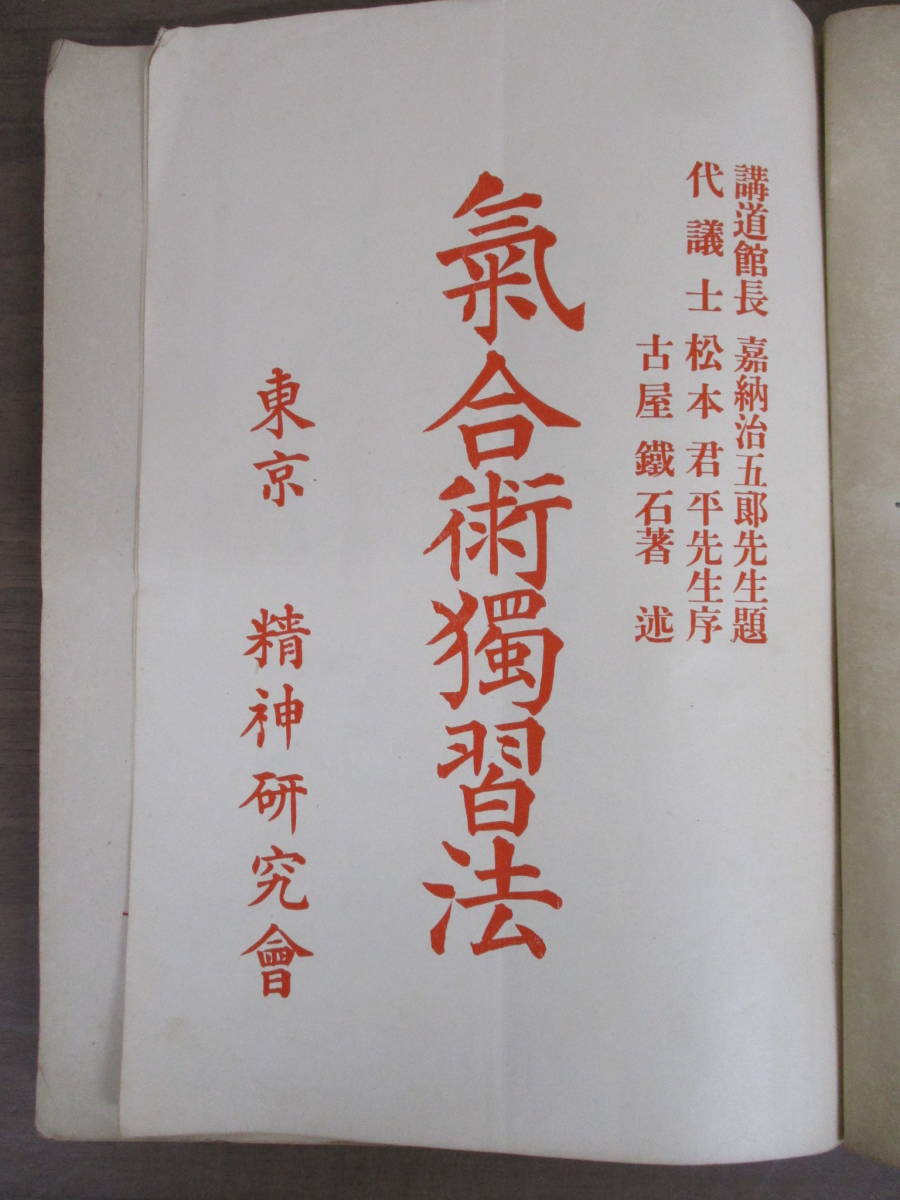 講道館長 嘉納治五郎先生題
代議士 松本君平先生序
古屋鐵石著述
氣合術獨習法
東京 精神研究會